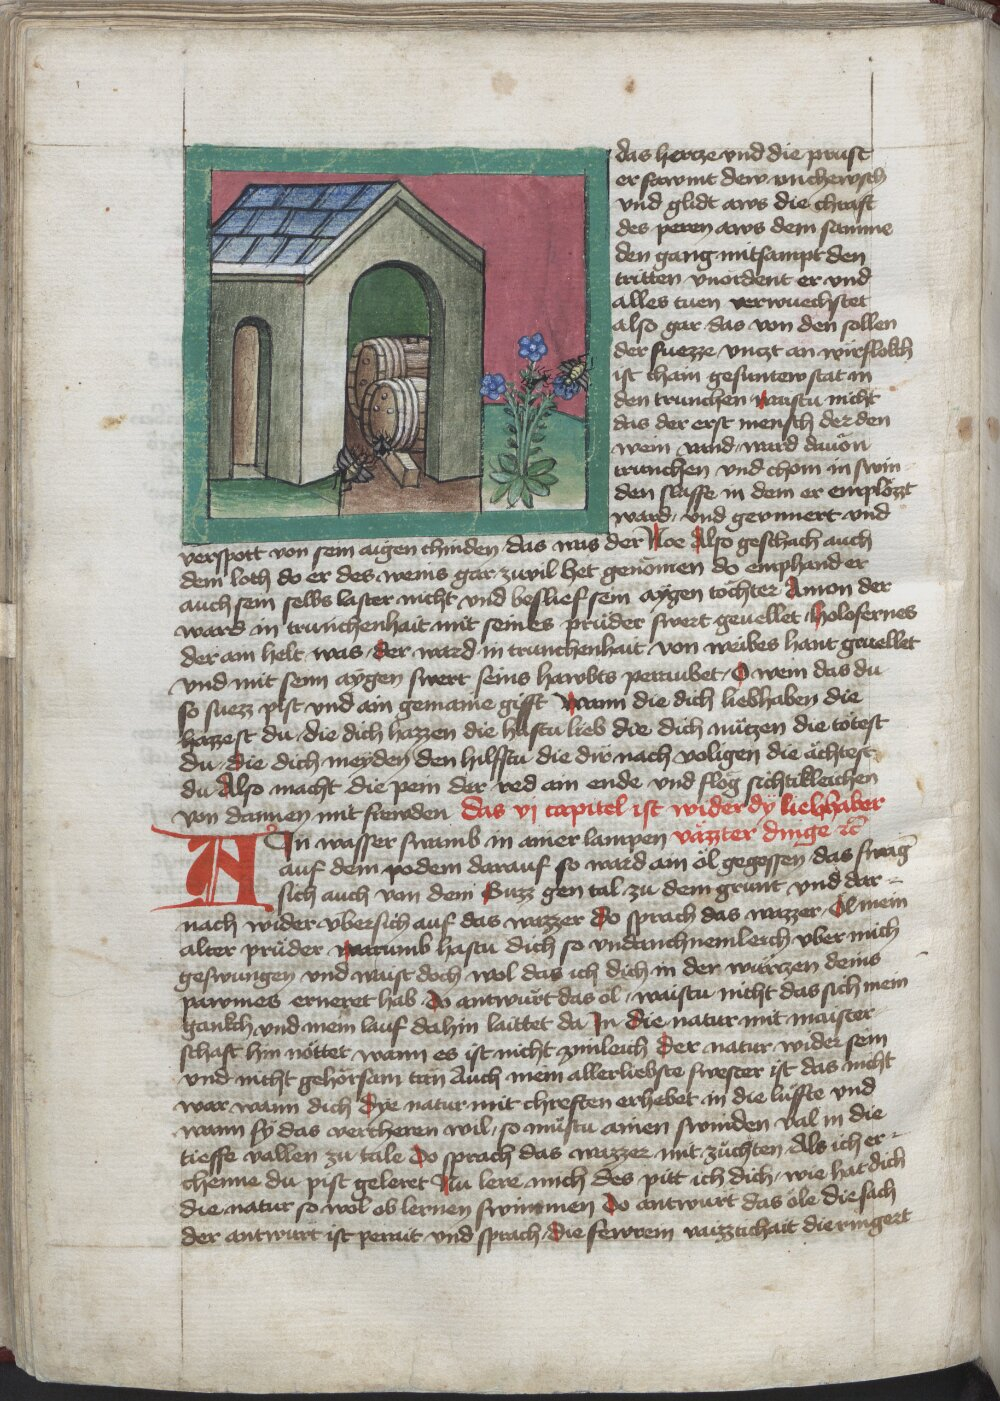 das hercze vnd die prust
er sawmt dew vnchewsch
vnd glidt aws die chraft
des peren aws dem samme
den gang mitsampt den
tritten vnordent er vnd
alles tuen verwuechstet
also gar das von den sollen
der fuezze vnczt an wirflokch
ist chain gesunte stat in
den trunchen waistu nicht
das der erst mensch der den
wein vand ward dauon
trunchen vnd chom in swin
den slaffe in dem er emplözt
ward vnd gevnnert vnd
verspott von sein aigen chinden das was der Noe Also geschach auch
dem loth do er des weins gar zuvil het genomen do emphand er
auch sein selbs laster nicht vnd beslief sein aygen töchter Amon der
ward in trunchenhait mit seines prüder swert geuellet holofernes
der ain helt was der ward in trunchenhait von weibes hant geuellet
vnd mit seim aygen swert seins hawbts peraubet O wein das du
so suezz pist vnd ain gemaine gifft Wann die dich liebhaben die
hazzest du die dich hazzen die hastu lieb die dich nützen die tötest
du die dich meyden den hilfstu die dir nach voligen die ächtest
du Also macht die pein der red ain ende vnd flog sichtikleichen
von dannen mit frewden das vj capitel ist wider dy liebhaber
AIn wasser swamb in ainer lampen väzter dinge etc
auf dem podem darauf so ward ain öl gegossen das swag
sich auch von dem Guzz gen tal zu dem grunt vnd dar
nach wider vbersich auf das wazzer Do sprach das wazzer Öl mein
alter prüder warumb hastu dich so vndanchnemleich vber mich
geswungen vnd waist doch wol das ich dich in der würzen deins
pawmes erneret hab Do antwurt das öl waistu nicht das sich mein
gankch vnd mein lauf dahin laittet da In die natur mit maister
schaft hin nöttet wann es ist nicht zimleich Der natur wider sein
vnd nicht gehörsam tän Auch mein allerliebste swester ist das nicht
war wann dich Dye natur mit chreften erhebet in die lüffte vnd
wann sy das vercheren wil so müstu ainen swinden val in die
tieffe vallen zu tale Do sprach das wazzer mit züchten Als ich er
chenne du pist geleret Nu lere mich des pitt ich dich wie hat dich
die natur so wol ob lernen swimmen Do antwurt das öle die sach
der antwurt ist perait vnd sprach die fewrein vaizztichait die ringert